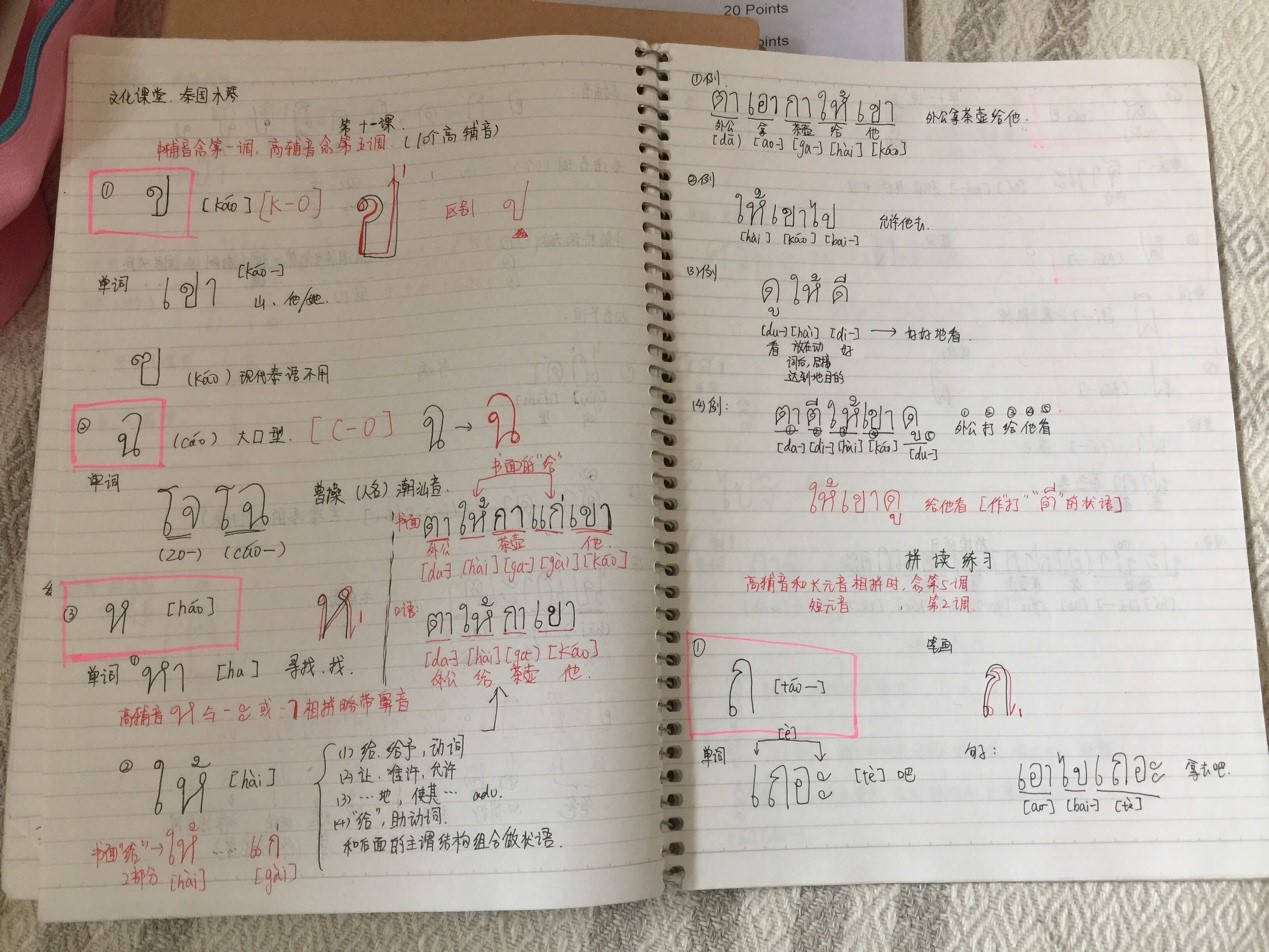 20 Points
oints
文化课堂：泰国木琴
第十一课.
中辅音念第一调，高辅音念第五调. (10个高辅音)
① ข [káo] [K-O] 区别 บ
单词 เขา [káo-] 山、他/她.
ฃ (káo) 现代泰语不用
② ฉ (cáo) 大口型. [C-O] ฉ → ฉ
单词 โจโฉ 曹操 (人名) 潮汕音.
(zo-) (cáo-)
书面的"给"
书面: ตาให้กาแก่เขา
外公 茶壶 他
[da-] [hài] [ga-] [gài] [káo]
③ ห [háo] ห
口语: ตาให้กาเขา
[da-] [hài] [ga-] [káo]
外公 给 茶壶 他
单词 ① หา [ha] 寻找.找.
高辅音 ห 与 -ะ 或 -า 相拼略带鼻音
② ให้ [hài]
(1) 给.给予，动词
(2) 让.准许，允许
(3) …地，使其… adv.
(4) "给"，助动词.
和后面的主谓结构组合做状语.
书面"给"→ ให้ … แก่
2部分 [hài] [gài]
①例.
ตาเอากาให้เขา 外公拿茶壶给他.
外公 拿 茶壶 给 他
[dā) [ao-] [ga-] [hài] [káo]
②例
ให้เขาไป 允许他去.
[hài] [káo] [bai-]
(3)例
ดูให้ดี
[du-] [hài] [di-] → 好好地看.
看 放在动 好
词后,后接
达到地目的
(4)例:
ตาตีให้เขาดู ① ② ③ ④ ⑤ 外公打给他看
[da-] [di-] [hài] [káo] [du-]
ให้เขาดู 给他看 [作"打" "ตี"的状语]
拼读练习
高辅音和长元音相拼时,念第5调
短元音 , 第2调.
① ถ [táo-]
笔画
ถ
[tè]
单词 เถอะ [tè] 吧
句子: เอาไปเถอะ 拿去吧.
[ao-] [bai-] [tè]